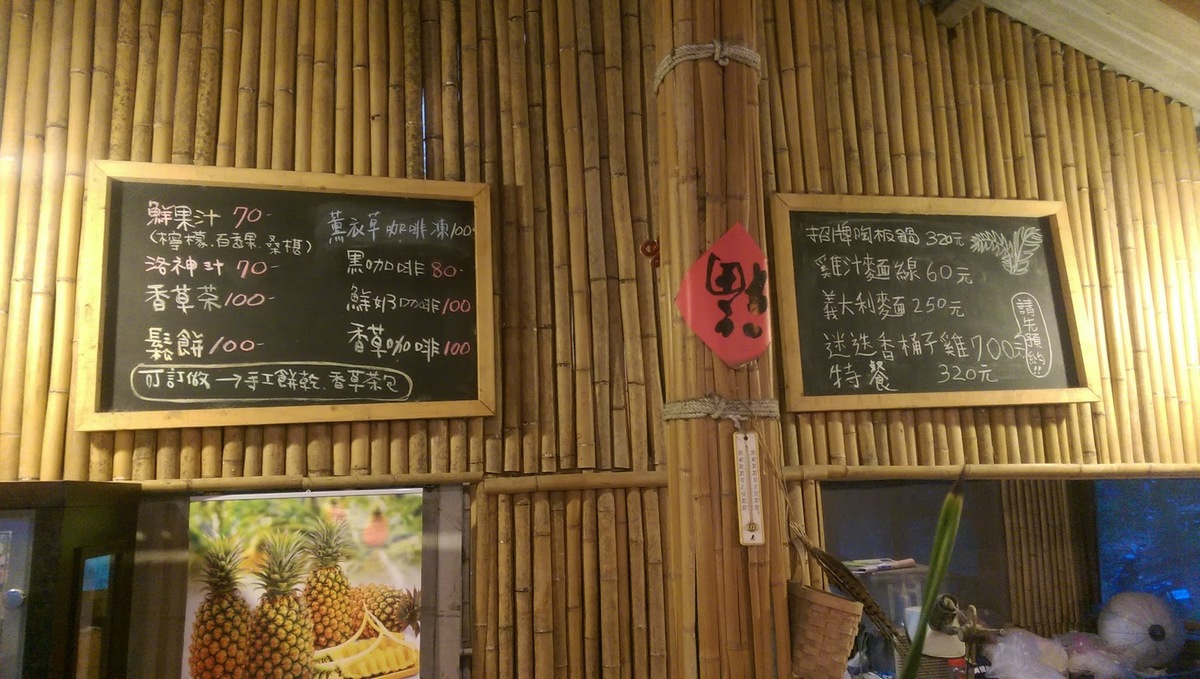 鮮果汁 70-
(檸檬.百香果.桑椹)
洛神汁 70-
香草茶100-
鬆餅100-
可訂做→手工餅乾.香草茶包
薰衣草咖啡凍100-
黑咖啡80-
鮮奶咖啡100
香草咖啡100
招牌陶板鍋 320元
雞汁麵線60元
義大利麵250元
迷迭香桶子雞700元
特餐 320元
請先預約!!